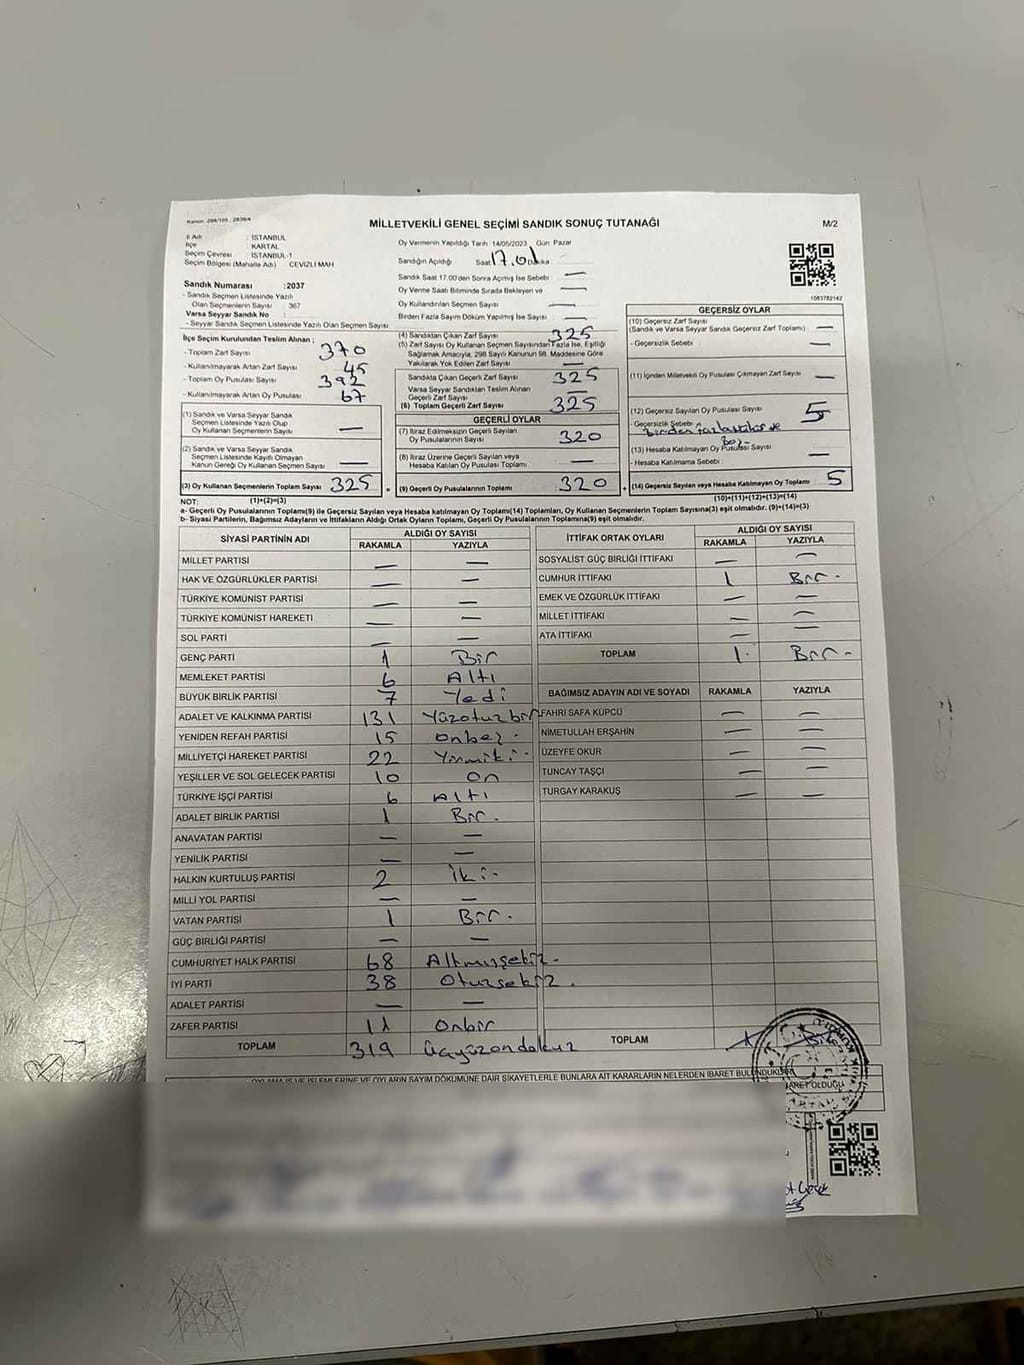 Kanun: 298/105 , 2839/4
MİLLETVEKİLİ GENEL SEÇİMİ SANDIK SONUÇ TUTANAĞI
M/2
İl Adı : İSTANBUL
İlçe : KARTAL
Seçim Çevresi : İSTANBUL-1
Seçim Bölgesi (Mahalle Adı) : CEVİZLİ MAH
Sandık Numarası : 2037
- Sandık Seçmen Listesinde Yazılı
Olan Seçmenlerin Sayısı : 367
Varsa Seyyar Sandık No :
- Seyyar Sandık Seçmen Listesinde Yazılı Olan Seçmen Sayısı:
Oy Vermenin Yapıldığı Tarih :14/05/2023 Gün :Pazar
Sandığın Açıldığı Saat 17.01 Dakika
Sandık Saat 17.00'den Sonra Açılmış İse Sebebi : —
Oy Verme Saati Bitiminde Sırada Bekleyen ve
Oy Kullandırılan Seçmen Sayısı : —
Birden Fazla Sayım Döküm Yapılmış İse Sayısı : —
1063782142
İlçe Seçim Kurulundan Teslim Alınan ;
- Toplam Zarf Sayısı : 370
- Kullanılmayarak Artan Zarf Sayısı : 45
- Toplam Oy Pusulası Sayısı : 392
- Kullanılmayarak Artan Oy Pusulası : 67
(1) Sandık ve Varsa Seyyar Sandık
Seçmen Listesinde Yazılı Olup
Oy Kullanan Seçmenlerin Sayısı —
(2) Sandık ve Varsa Seyyar Sandık
Seçmen Listesinde Kayıtlı Olmayan
Kanun Gereği Oy Kullanan Seçmen Sayısı —
(3) Oy Kullanan Seçmenlerin Toplam Sayısı 325 =
(4) Sandıktan Çıkan Zarf Sayısı : 325
(5) Zarf Sayısı Oy Kullanan Seçmen Sayısından Fazla İse, Eşitliği
Sağlamak Amacıyla, 298 Sayılı Kanunun 98. Maddesine Göre
Yakılarak Yok Edilen Zarf Sayısı : —
Sandıkta Çıkan Geçerli Zarf Sayısı : 325
Varsa Seyyar Sandıktan Teslim Alınan
Geçerli Zarf Sayısı : —
(6) Toplam Geçerli Zarf Sayısı : 325
GEÇERLİ OYLAR
(7) İtiraz Edilmeksizin Geçerli Sayılan
Oy Pusulalarının Sayısı : 320
(8) İtiraz Üzerine Geçerli Sayılan veya
Hesaba Katılan Oy Pusulası Toplamı : —
(9) Geçerli Oy Pusulalarının Toplamı : 320 +
GEÇERSİZ OYLAR
(10) Geçersiz Zarf Sayısı :
(Sandık ve Varsa Seyyar Sandık Geçersiz Zarf Toplamı) —
- Geçersizlik Sebebi : —
(11) İçinden Milletvekili Oy Pusulası Çıkmayan Zarf Sayısı : —
(12) Geçersiz Sayılan Oy Pusulası Sayısı : 5
- Geçersizlik Sebebi : Birden fazla ve
Boş
(13) Hesaba Katılmayan Oy Pusulası Sayısı :
- Hesaba Katılmama Sebebi : —
(14) Geçersiz Sayılan veya Hesaba Katılmayan Oy Toplamı : 5
NOT: (1)+(2)=(3)
(10)+(11)+(12)+(13)=(14)
a- Geçerli Oy Pusulalarının Toplamı(9) ile Geçersiz Sayılan veya Hesaba katılmayan Oy Toplamı(14) Toplamları, Oy Kullanan Seçmenlerin Toplam Sayısına(3) eşit olmalıdır. (9)+(14)=(3)
b- Siyasi Partilerin, Bağımsız Adayların ve İttifakların Aldığı Ortak Oyların Toplamı, Geçerli Oy Pusulalarının Toplamına(9) eşit olmalıdır.
SİYASİ PARTİNİN ADI ALDIĞI OY SAYISI
RAKAMLA YAZIYLA
MİLLET PARTİSİ — —
HAK VE ÖZGÜRLÜKLER PARTİSİ — —
TÜRKİYE KOMÜNİST PARTİSİ — —
TÜRKİYE KOMÜNİST HAREKETİ — —
SOL PARTİ — —
GENÇ PARTİ 1 Bir
MEMLEKET PARTİSİ 6 Altı
BÜYÜK BİRLİK PARTİSİ 7 Yedi
ADALET VE KALKINMA PARTİSİ 131 Yüzotuzbir
YENİDEN REFAH PARTİSİ 15 Onbeş
MİLLİYETÇİ HAREKET PARTİSİ 22 Yirmiki
YEŞİLLER VE SOL GELECEK PARTİSİ 10 On
TÜRKİYE İŞÇİ PARTİSİ 6 Altı
ADALET BİRLİK PARTİSİ 1 Bir
ANAVATAN PARTİSİ — —
YENİLİK PARTİSİ — —
HALKIN KURTULUŞ PARTİSİ 2 İki
MİLLİ YOL PARTİSİ — —
VATAN PARTİSİ 1 Bir
GÜÇ BİRLİĞİ PARTİSİ — —
CUMHURİYET HALK PARTİSİ 68 Altmışsekiz
İYİ PARTİ 38 Otuzsekiz
ADALET PARTİSİ — —
ZAFER PARTİSİ 11 Onbir
TOPLAM 319 üçyüzondokuz
İTTİFAK ORTAK OYLARI ALDIĞI OY SAYISI
RAKAMLA YAZIYLA
SOSYALİST GÜÇ BİRLİĞİ İTTİFAKI — —
CUMHUR İTTİFAKI 1 Bir
EMEK VE ÖZGÜRLÜK İTTİFAKI — —
MİLLET İTTİFAKI — —
ATA İTTİFAKI — —
TOPLAM 1 Bir
BAĞIMSIZ ADAYIN ADI VE SOYADI RAKAMLA YAZIYLA
FAHRİ SAFA KÜPCÜ — —
NİMETULLAH ERŞAHİN — —
ÜZEYFE OKUR — —
TUNCAY TAŞÇI — —
TURGAY KARAKUŞ — —
TOPLAM
OYLAMA İŞ VE İŞLEMLERİNE VE OYLARIN SAYIM DÖKÜMÜNE DAİR ŞİKAYETLERLE BUNLARA AİT KARARLARIN NELERDEN İBARET BULUNDUKLARI
İBARET OLDUĞU